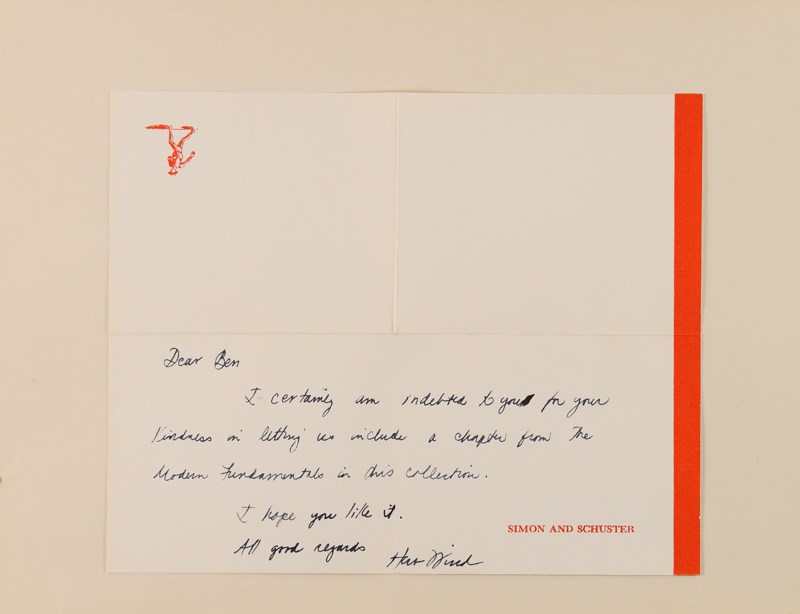 Dear Ben
I certainly am indebted to you for your
kindness in letting us include a chapter from The
Modern Fundamentals in this collection.
I hope you like it.
SIMON AND SCHUSTER
All good regards
Herb Wind